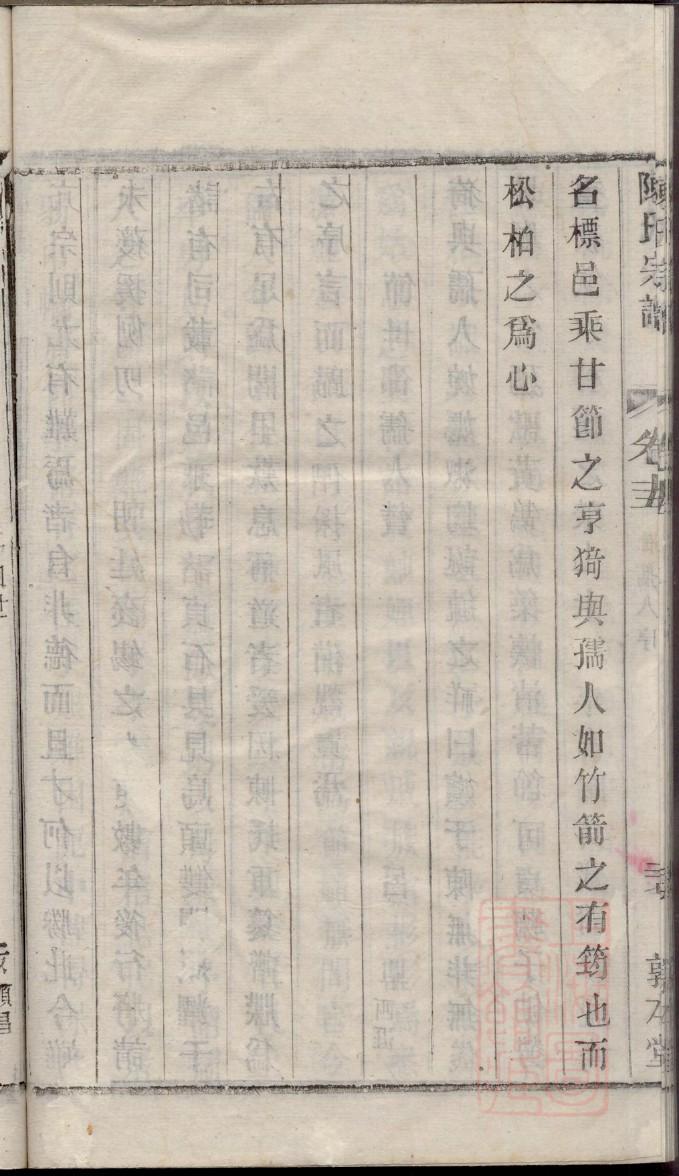 陳氏宗譜
卷
敦本堂
名標邑乘甘節之亨猗與孺人如竹箭之有筠也而
松柏之爲心